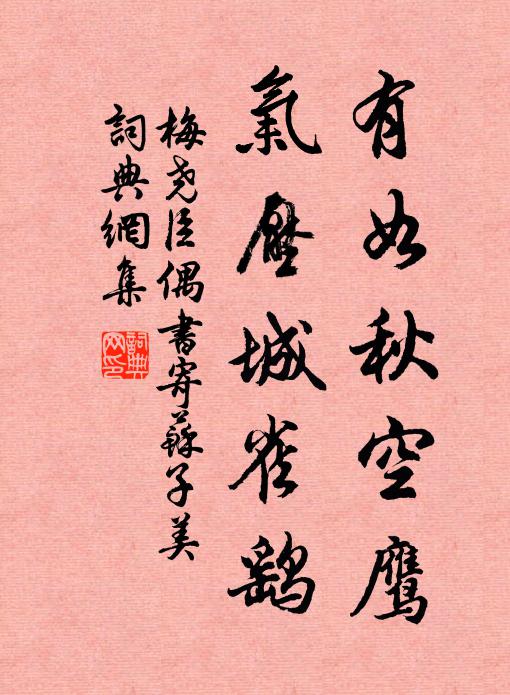 有如秋空鹰
氣壓城雀鷂
梅尧臣偶書寄蘇子美
詞典網集
詞典網印